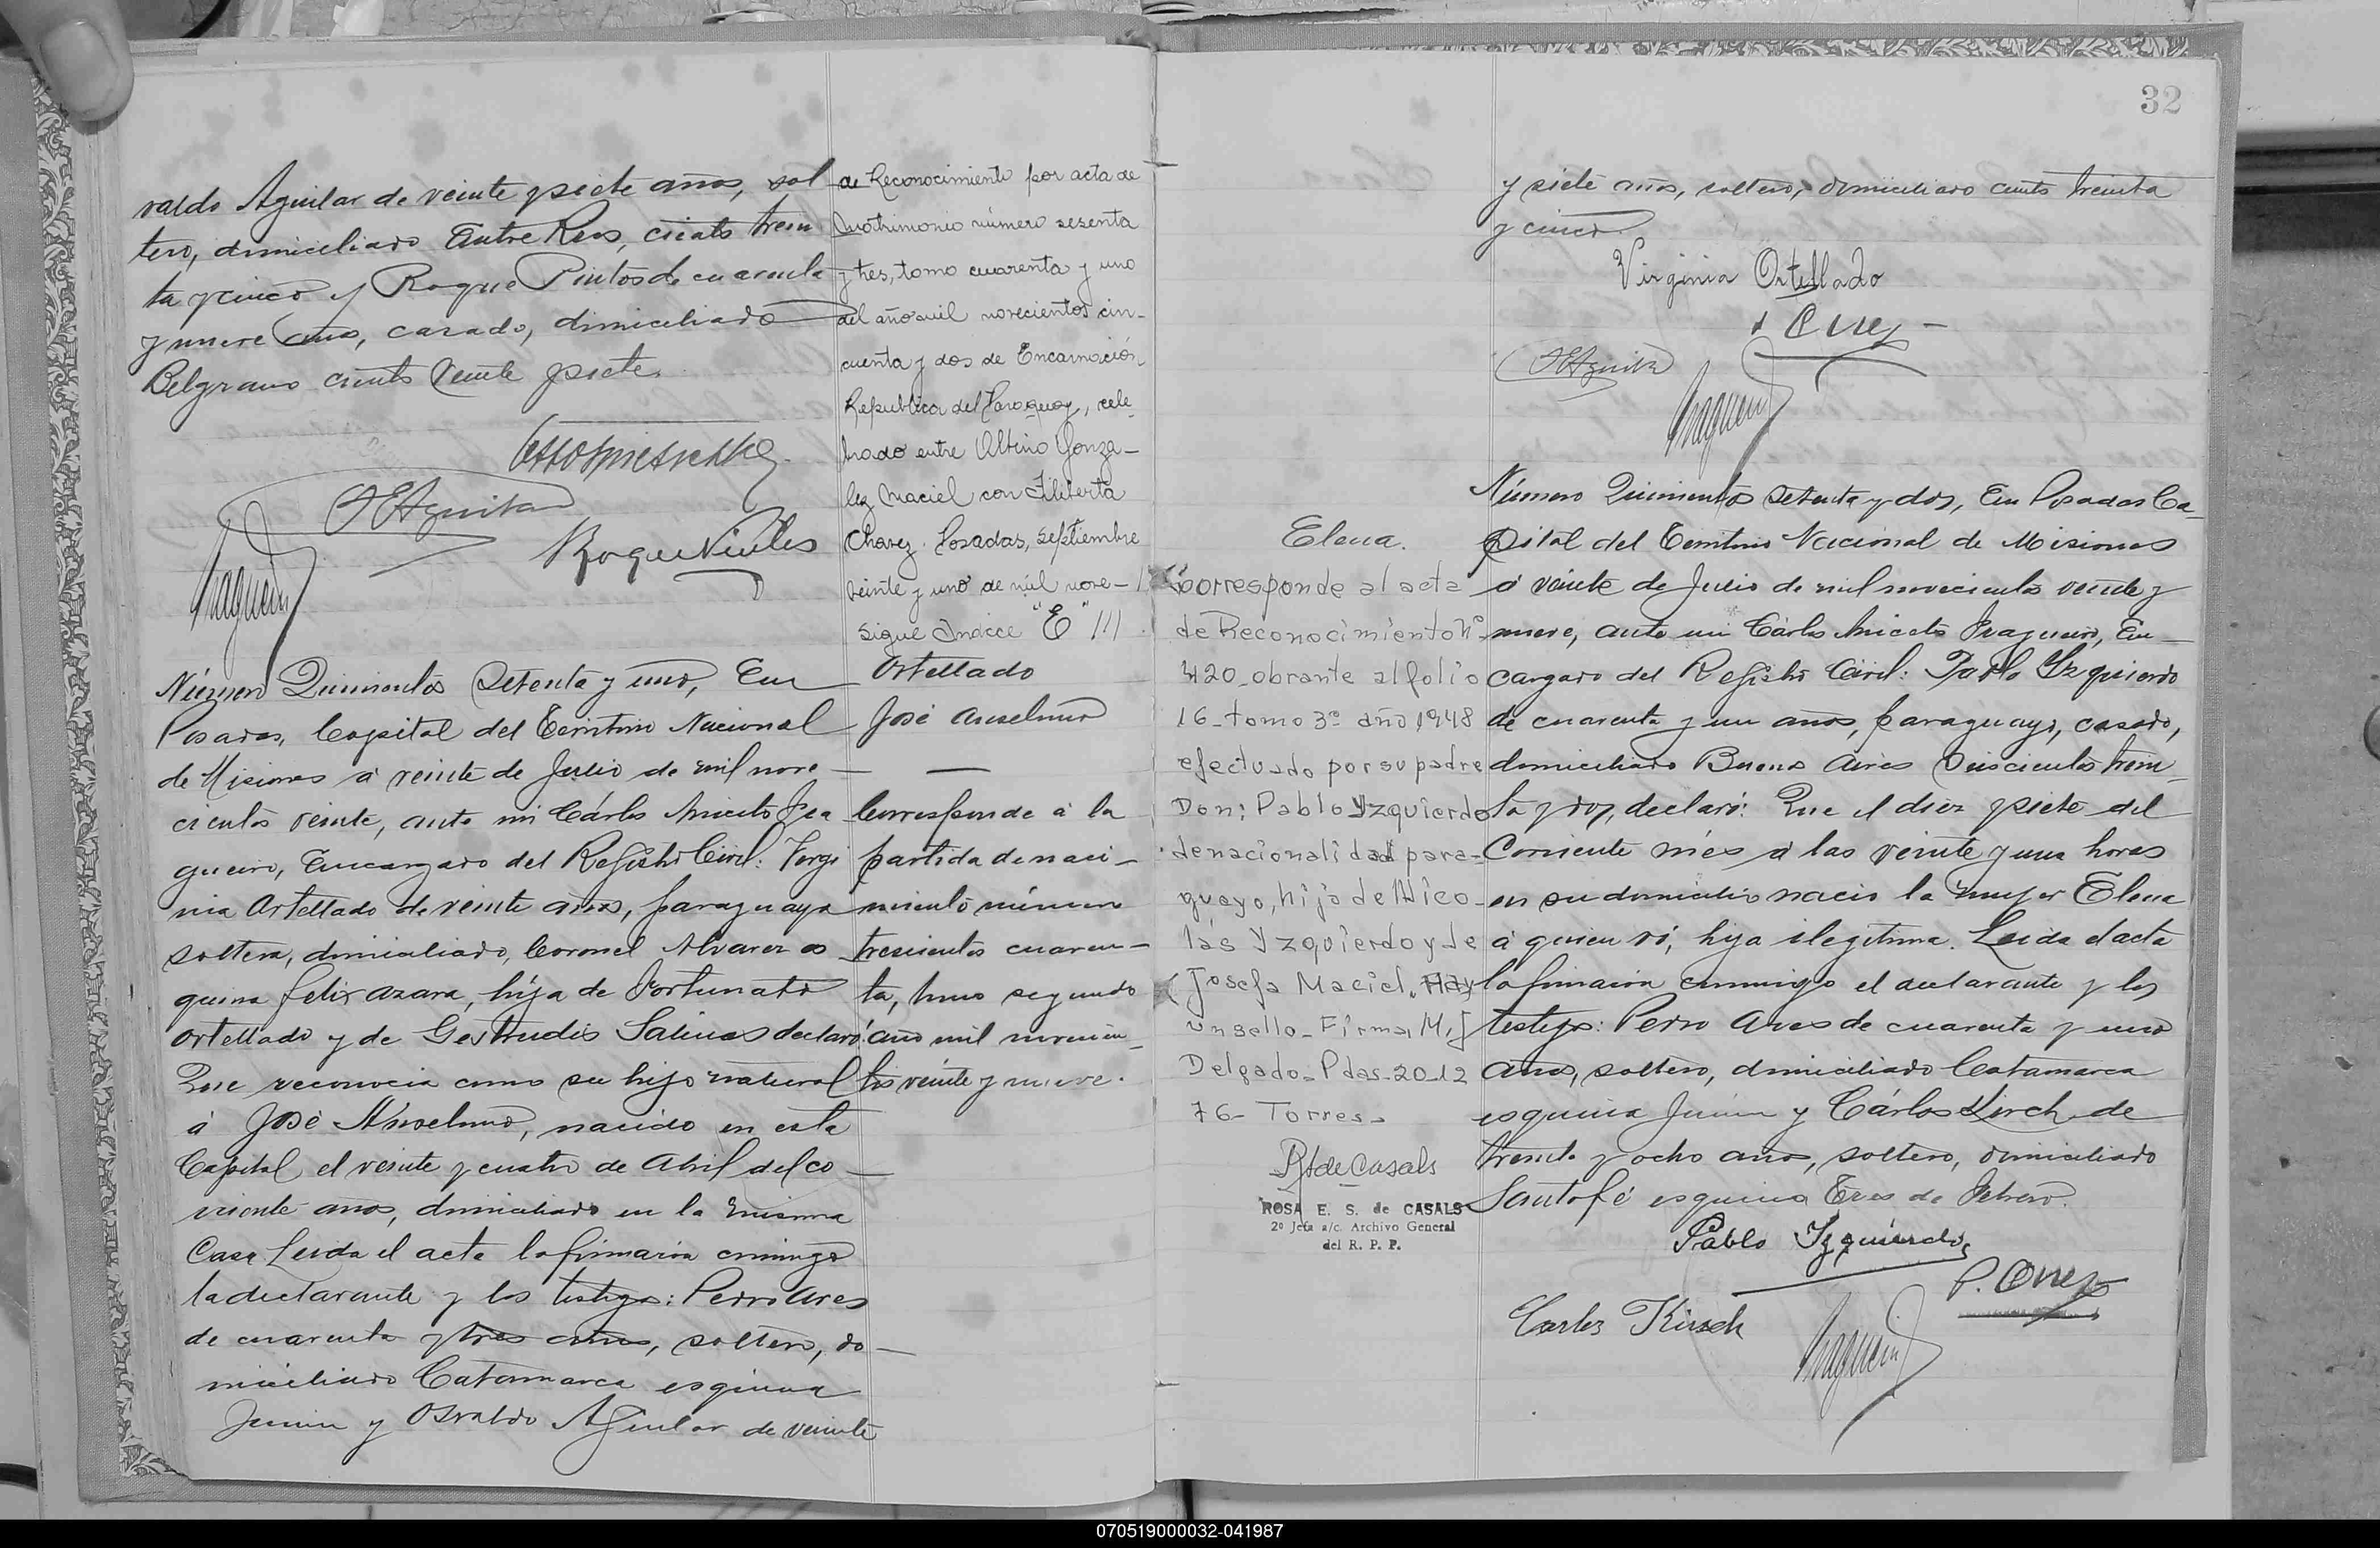 valdo Aguilar de veinte y siete años, sol
tero, domiciliado Entre Rios, ciento trein
ta y cinco y Roque Pintos de cuarenta
y nueve años, casado, domiciliado
Belgrano ciento veinte y siete.
Número Quinientos Setenta y uno, En
Posadas, Capital del Territorio Nacional
de Misiones á veinte de Julio de mil nove
cientos veinte, ante mi Cárlos Aniceto Fra
gueiro, Encargado del Registro Civil: Virgi
nia Ortellado de veinte años, paraguaya
soltera, domiciliado, Coronel Alvarez es
quina felix azara, hija de Fortunato
Ortellado y de Gertrudis Salinas declaró:
Que reconocia como su hijo natural
á José Anselmo, nacido en esta
Capital el veinte y cuatro de Abril del co
rriente año, domiciliado en la misma
Casa Leida el acta la firmaron conmigo
la declarante y los testigos: Pedro Ares
de cuarenta y tres años, soltero, do
miciliado Catamarca esquina
Junin y Osvaldo Aguilar de veinte
de Reconocimiento por acta de
Matrimonio número sesenta
y tres, tomo cuarenta y uno
del año mil novecientos cin-
cuenta y dos de Encarnación
Republica del Paraguay, cele-
brado entre Albino Gonza-
lez Maciel con Filiberta
Chavez. Posadas, septiembre
veinte y uno de mil nove-
sigue Indice "E" ///
Ortellado
José Anselmo
Corresponde á la
partida de naci-
miento número
trescientos cuaren-
ta, tomo segundo
año mil novecien-
tos veinte y nueve.
32
y siete años, soltero, domiciliado ciento treinta
y cinco
Virginia Ortellado
Elena.
Corresponde al acta
de Reconocimiento Nº
420_obrante al folio
16_tomo 3º año 1948
efectuado por su padre
Don: Pablo Yzquierdo
de nacionalidad para-
guayo, hijo de Nico-
lás Yzquierdo y de
Josefa Maciel. Hay
un sello_Firma, M. J
Delgado_Pdas_20_12
76_ Torres_
R S de Casals
ROSA E. S. de CASALS
2º Jefa a/c. Archivo General
del R. P. P.
Número Quinientos Setenta y dos, En Posadas Ca
pital del Territorio Nacional de Misiones
á veinte de Julio de mil novecientos veinte y
nueve, ante mi Cárlos Aniceto Fragueiro, En
cargado del Registro Civil: Pablo Yzquierdo
de cuarenta y un años, paraguayo, casado,
domiciliado Buenos Aires Seiscientos trein
ta y dos, declaró: Que el diez y siete del
Corriente més á las veinte y una horas
en su domicilio nació la mujer Elena
á quien ví, hija ilegítima. Leida el acta
la firmaron conmigo el declarante y los
testigos: Pedro Ares de cuarenta y uno
años, soltero, domiciliado Catamarca
esquina Junin y Cárlos Kirch de
treinta y ocho años, soltero, domiciliado
Santa fé esquina Tres de Febrero.
Pablo Yzquierdo
P. Arez
Carlos Kirsch
070519000032-041987